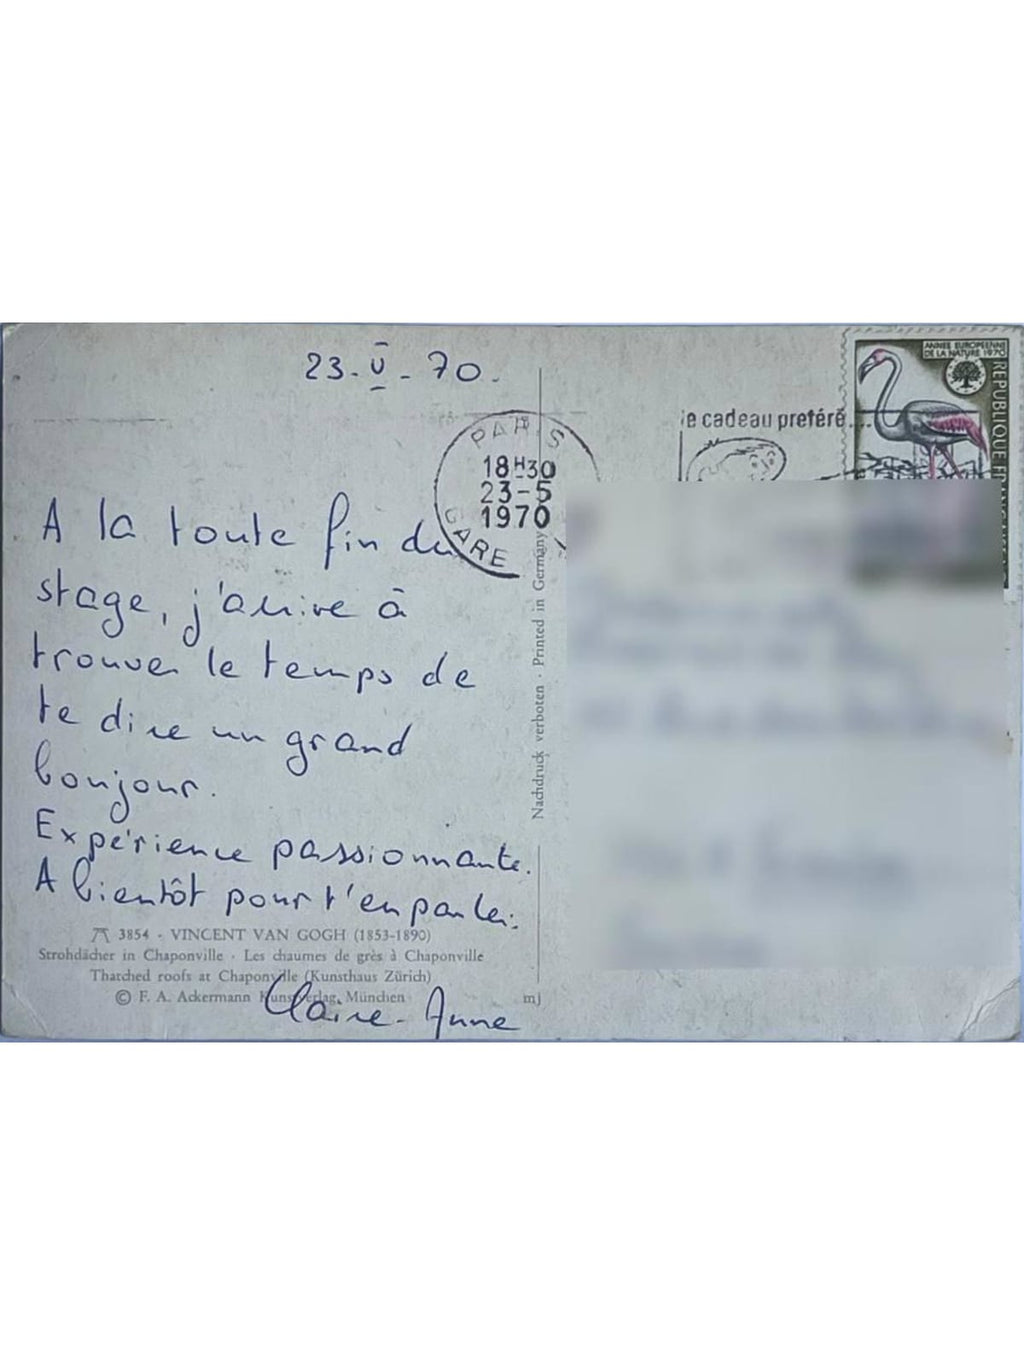 23-V-70.
ANNEE EUROPEENNE
DE LA NATURE 1970
REPUBLIQUE
le cadeau preféré...
PARIS
18H30
23-5
1970
GARE
A la toute fin du
stage, j'arrive à
trouver le temps de
te dire un grand
bonjour.
Expérience passionnante.
A bientôt pour t'en parler.
Claire-Anne
3854 · VINCENT VAN GOGH (1853-1890)
Strohdächer in Chaponville · Les chaumes de grès à Chaponville
Thatched roofs at Chaponville (Kunsthaus Zürich)
© F. A. Ackermann Kunstverlag, München
mj
Nachdruck verboten · Printed in Germany